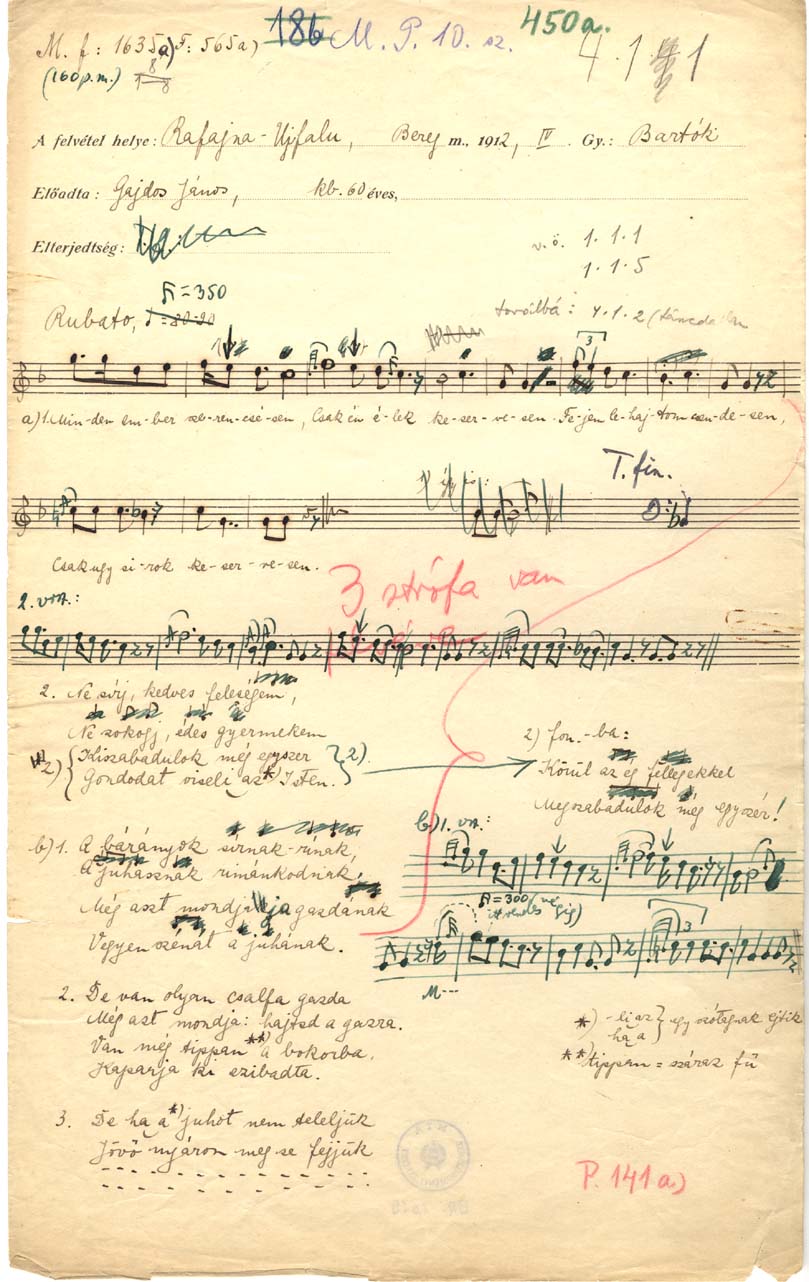 M. f: 1635a) F: 565a) 18b M. P. 10. sz. 450a.
(160 p.m.)
4. 1. 1
A felvétel helye: Rafajna-Ujfalu, Bereg m., 1912, IV. Gy.: Bartók
Előadta: Gajdos János, kb. 60 éves,
Elterjedtség:
v.ö. 1. 1. 1
1. 1. 5
= 350
Rubato,
4. 1. 2
3
a) 1. Min-den em-ber sze-ren-csé-sen, Csak én é-lek ke-ser-ve-sen. Fe-jem le-haj-tom csen-de-sen,
T. fin.
Csak ugy si-rok ke-ser-ve-sen.
3 strófa van
2. vrs.:
2. Ne sirj, kedves feleségem,
Ne zokogj, édes gyermekem
2) { Kiszabadulok még egyszer } 2).
Gondodat viseli az *) Isten.
2) fon.-ba:
Körül az ég fellegekkel
Megszabadulok még egyszer!
b) 1. vrs.:
b) 1. A bárányok sirnak-rinak,
A juhásznak rimánkodnak,
Még aszt mondja a gazdának
Vegyen szénát a juhának.
= 300
3
M---
2. De van olyan csalfa gazda
Még aszt mondja: hajtsd a gazra.
Van még tippan **) a bokorba,
Kaparja ki szibadta.
*) -li az } egy szótagnak ejtik
ha a
**) tippan = száraz fű
3. De ha a *) juhot nem teleljük
Jövő nyáron meg se fejjük
P. 141 a)